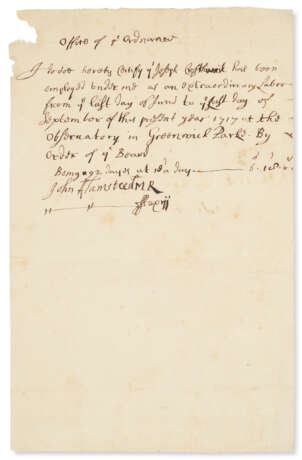 Office of ye Ordnance
I doe hereby Certify yt Joseph has been
employed under me as an extraordinary Labor
from ye last day of June to ye last day of
September of this present year 1717 at the
Observatory in Greenwich Parke By
Order of ye Board
Being 92 days at a day
John Flamsteed MR